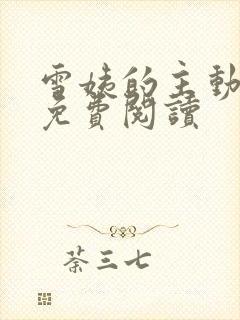 雪姨的主動
免費閱讀
荼三七